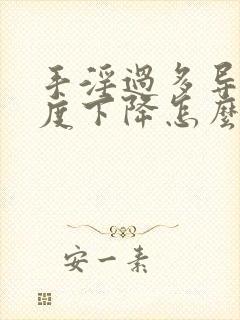 手淫過多导
度下降怎麼
安一素